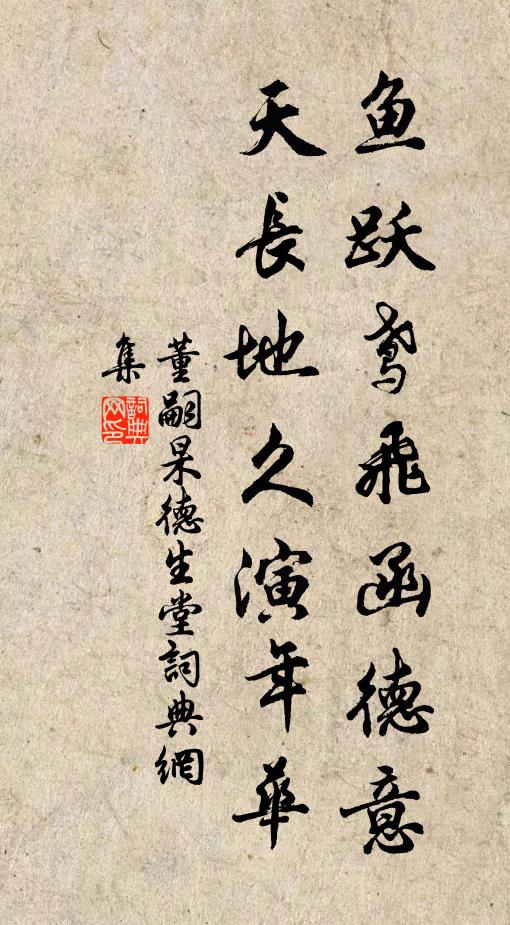 鱼跃鸢飛函德意
天長地久演年華
董嗣杲德生堂詞典網
集
詞典网印